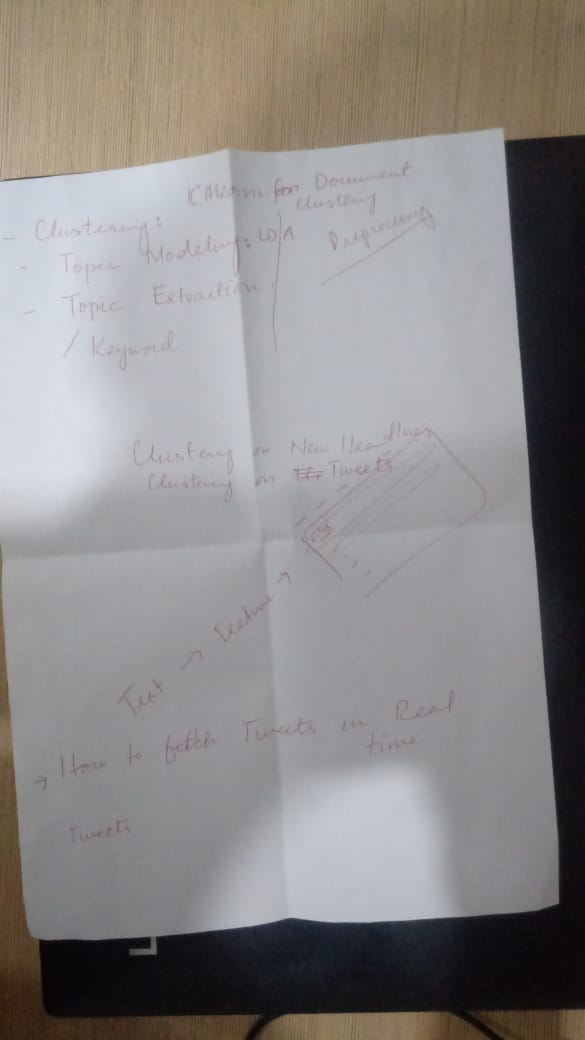 KMeans for Document
Clustering
- Clustering:
- Topic Modeling: LDA
Preprocessing
- Topic Extraction
/ Keyword
Clustering on New Headlines
Clustering on Tweets
Text → Feature →
→ How to fetch Tweets in Real
time
Tweets